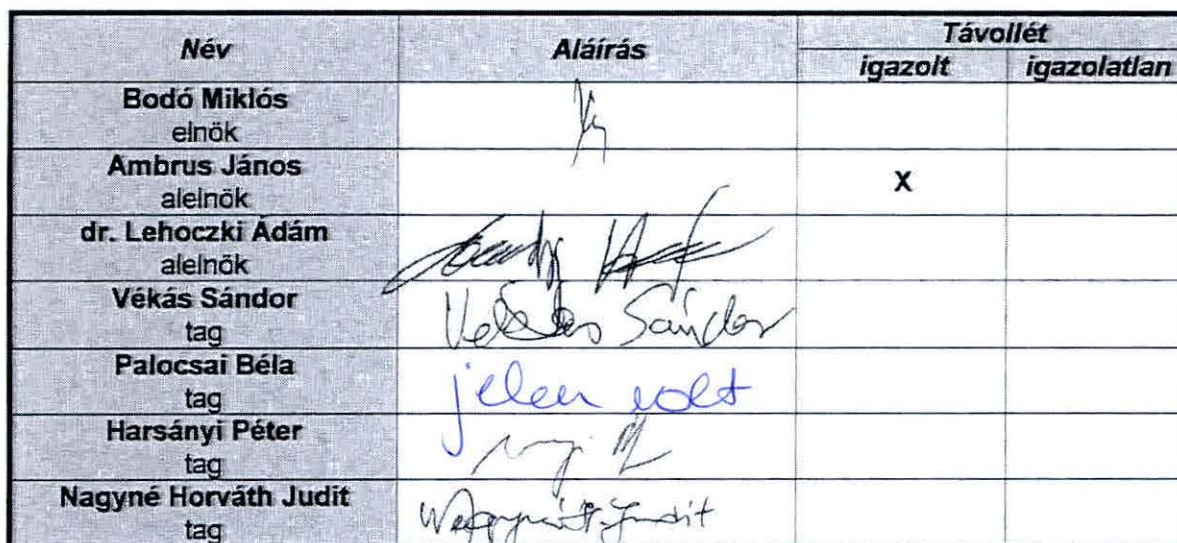 Név Aláírás Távollét
igazolt igazolatlan
Bodó Miklós
elnök
Ambrus János X
alelnök
dr. Lehoczki Ádám
alelnök
Vékás Sándor Vékás Sándor
tag
Palocsai Béla jelen volt
tag
Harsányi Péter
tag
Nagyné Horváth Judit Nagyné H. Judit
tag